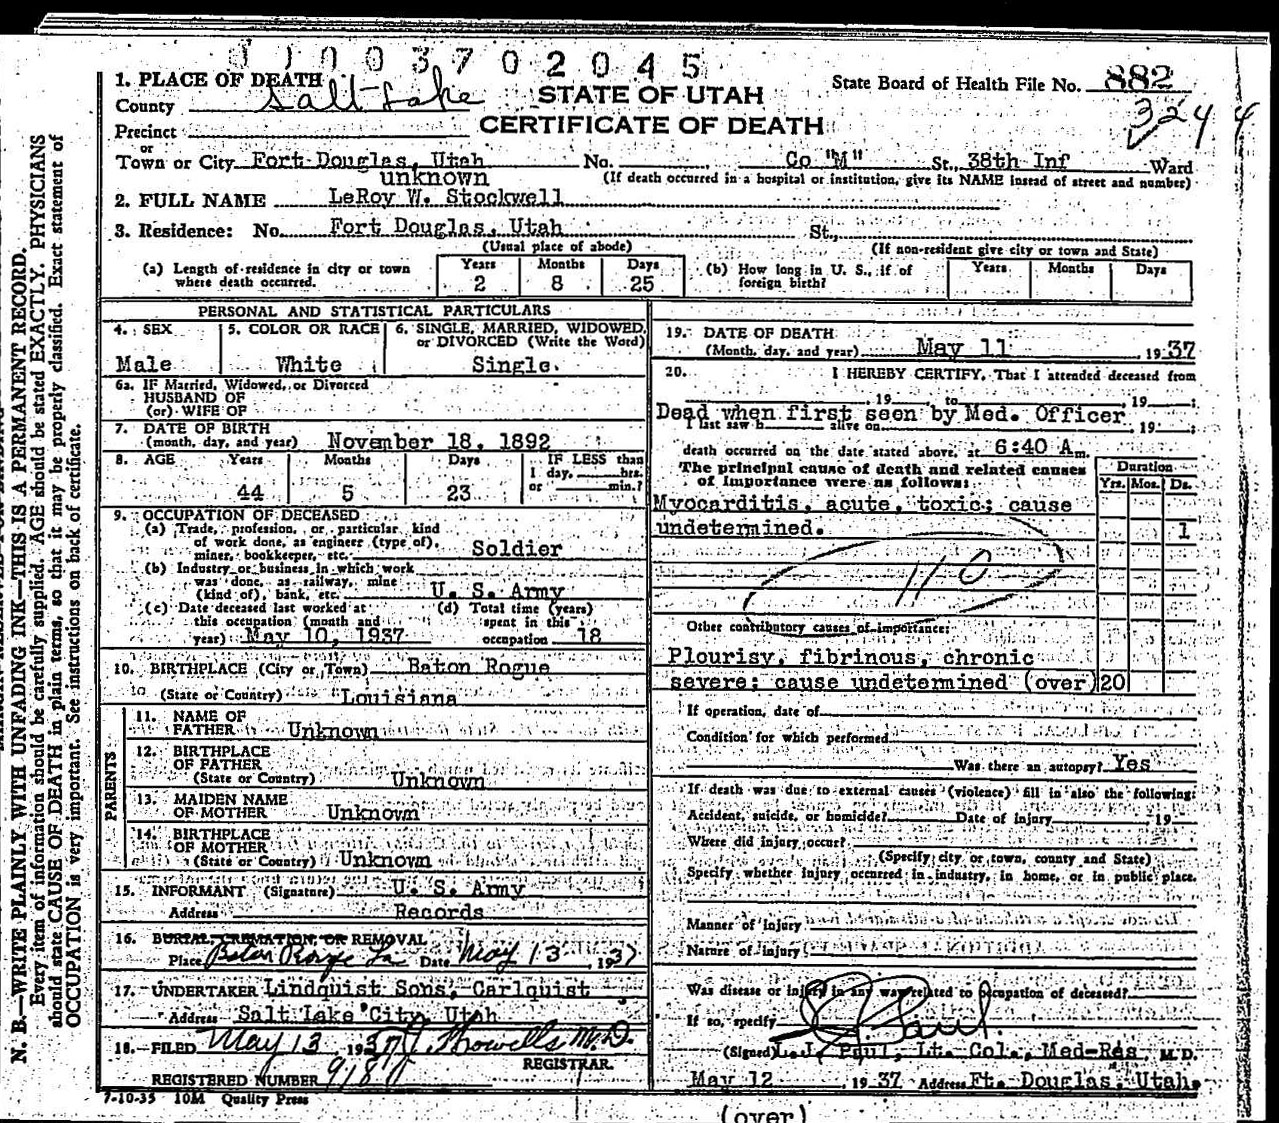 1 1 0 0 3 7 0 2 0 4 5
1. PLACE OF DEATH
County Salt Lake
STATE OF UTAH
CERTIFICATE OF DEATH
State Board of Health File No. 882
324 4
Precinct
or
Town or City Fort Douglas, Utah No. Co "M" St., 38th Inf Ward
unknown (If death occurred in a hospital or institution, give its NAME instead of street and number)
2. FULL NAME LeRoy W. Stockwell
3. Residence: No. Fort Douglas, Utah St.,
(Usual place of abode) (If non-resident give city or town and State)
(a) Length of residence in city or town where death occurred.
Years Months Days
2 8 25
(b) How long in U. S., if of foreign birth?
Years Months Days
PERSONAL AND STATISTICAL PARTICULARS
4. SEX 5. COLOR OR RACE 6. SINGLE, MARRIED, WIDOWED,
or DIVORCED (Write the Word)
Male White Single.
6a. IF Married, Widowed, or Divorced
HUSBAND OF
(or) WIFE OF
7. DATE OF BIRTH
(month, day, and year) November 18, 1892
8. AGE Years Months Days IF LESS than
1 day, hrs.
or min.?
44 5 23
9. OCCUPATION OF DECEASED
(a) Trade, profession, or particular kind
of work done, as engineer (type of),
miner, bookkeeper, etc. Soldier
(b) Industry or business in which work
was done, as railway, mine
(kind of), bank, etc. U. S. Army
(c) Date deceased last worked at
this occupation (month and
year) May 10, 1937
(d) Total time (years)
spent in this
occupation 18
10. BIRTHPLACE (City or Town) Baton Rogue
(State or Country) Louisiana
PARENTS
11. NAME OF
FATHER Unknown
12. BIRTHPLACE
OF FATHER
(State or Country) Unknown
13. MAIDEN NAME
OF MOTHER Unknown
14. BIRTHPLACE
OF MOTHER
(State or Country) Unknown
15. INFORMANT (Signature) U. S. Army
Address Records
16. BURIAL, CREMATION, OR REMOVAL
Place Baton Rouge La Date May 13, 1937
17. UNDERTAKER Lindquist Sons, Carlquist
Address Salt Lake City, Utah
18. FILED May 13 1937 J. Howells M.D.
REGISTRAR.
REGISTERED NUMBER 918
7-10-35 10M Quality Press
19. DATE OF DEATH
(Month, day, and year) May 11, 1937
20. I HEREBY CERTIFY, That I attended deceased from
, 19 to , 19 ;
Dead when first seen by Med. Officer
I last saw h alive on , 19 ;
death occurred on the date stated above, at 6:40 A m.
The principal cause of death and related causes
of importance were as follows:
Duration
Yrs. Mos. Ds.
Myocarditis, acute, toxic; cause
undetermined. 1
110
Other contributory causes of importance:
Plourisy, fibrinous, chronic
severe; cause undetermined (over) 20
If operation, date of
Condition for which performed
Was there an autopsy? Yes
If death was due to external causes (violence) fill in also the following:
Accident, suicide, or homicide? Date of injury 19
Where did injury occur?
(Specify city or town, county and State)
Specify whether injury occurred in industry, in home, or in public place.
Manner of injury
Nature of injury
Was disease or injury in any way related to occupation of deceased?
If so, specify
(Signed) L. J. Paul, Lt. Col., Med-Res, M.D.
May 12 19 37 Address Ft. Douglas, Utah.
(over)
N. B.—WRITE PLAINLY WITH UNFADING INK—THIS IS A PERMANENT RECORD.
Every item of information should be carefully supplied. AGE should be stated EXACTLY. PHYSICIANS
should state CAUSE OF DEATH in plain terms, so that it may be properly classified. Exact statement of
OCCUPATION is very important. See instructions on back of certificate.